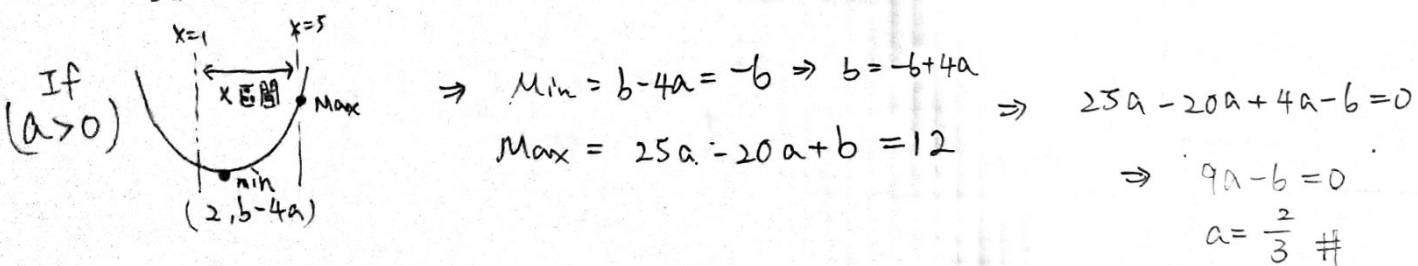 x=1 x=5
If
(a>0)
x 區間
Max
min
(2, b-4a)
⇒ Min = b-4a = -6 ⇒ b = -6+4a
Max = 25a - 20a + b = 12
⇒ 25a - 20a + 4a - 6 = 0
⇒ 9a - 6 = 0
a = 2/3 #